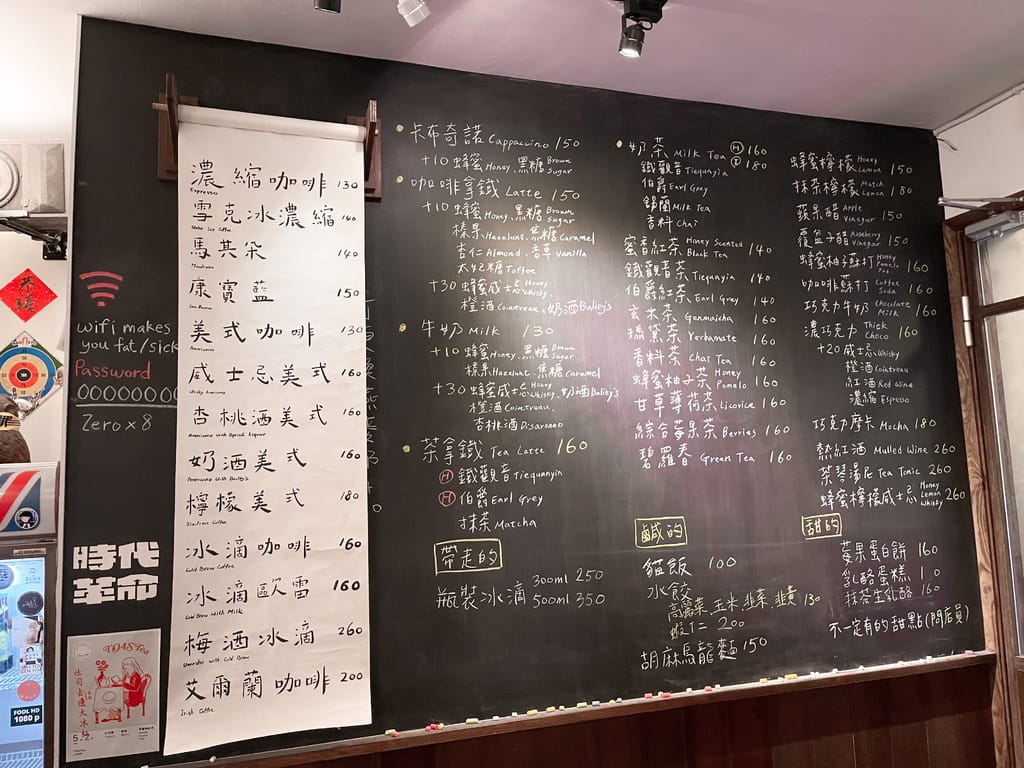 wifi makes
you fat/sick
Password
Zero x 8
時代
革命
FOOL HD
1080 p
濃縮咖啡 130
Espresso
雪克冰濃縮 140
馬其朵 140
康寶藍 150
美式咖啡 130
Americano
威士忌美式 160
Whisky Americano
杏桃酒美式 160
奶酒美式 160
檸檬美式 180
Sicilian Coffee
冰滴咖啡 160
Cold Brew Coffee
冰滴歐蕾 160
Cold Brew With Milk
梅酒冰滴 260
Umeshu with Cold Brew
艾爾蘭咖啡 200
Irish Coffee
卡布奇諾 Cappuccino 150
+10 蜂蜜 Honey、黑糖 Brown Sugar
咖啡拿鐵 Latte 150
+10 蜂蜜 Honey、黑糖 Brown Sugar
榛果 Hazelnut、焦糖 Caramel
杏仁 Almond、香草 Vanilla
太妃糖 Toffee
+30 蜂蜜威士忌 Honey Whisky
橙酒 Cointreau、奶酒 Bailey's
牛奶 Milk 130
+10 蜂蜜 Honey、黑糖 Brown Sugar
榛果 Hazelnut、焦糖 Caramel
+30 蜂蜜威士忌 Honey Whisky、奶酒 Bailey's
橙酒 Cointreau、
杏桃酒 Disaronno
茶拿鐵 Tea Latte 160
H 鐵觀音 Tiequanyin
H 伯爵 Earl Grey
抹茶 Matcha
帶走的
瓶裝冰滴 300ml 250
500ml 350
奶茶 Milk Tea H 160
I 180
鐵觀音 Tiequanyin
伯爵 Earl Grey
錫蘭 Milk Tea
香料 Chai
蜜香紅茶 Honey Scented Black Tea 140
鐵觀音茶 Tiequanyin 140
伯爵紅茶 Earl Grey 140
玄米茶 Genmaicha 160
瑪黛茶 Yerbamate 160
香料茶 Chai Tea 160
蜂蜜柚子茶 Honey Pomelo 160
甘草薄荷茶 Licorice 160
綜合莓果茶 Berries 160
碧羅春 Green Tea 160
鹹的
貓飯 100
水餃
高麗菜、玉米、韭菜、韭黃 130
蝦仁 200
胡麻烏龍麵 150
蜂蜜檸檬 Honey Lemon 150
抹茶檸檬 Match Lemon 180
蘋果醋 Apple Vinegar 150
覆盆子醋 Raspberry Vinegar 150
蜂蜜柚子蘇打 Honey Pomelo 160
咖啡蘇打 Coffee Soda 160
巧克力牛奶 Chocolate Milk 160
濃巧克力 Thick Choco 160
+20 威士忌 Whisky
橙酒 Cointreau
紅酒 Red Wine
濃縮 Espresso
巧克力摩卡 Mocha 180
熱紅酒 Mulled Wine 260
茶琴湯尼 Tea Tonic 260
蜂蜜檸檬威士忌 Honey Lemon Whisky 260
甜的
莓果蛋白餅 160
乳酪蛋糕
抹茶生乳酪 160
不一定有的甜點(問店員)